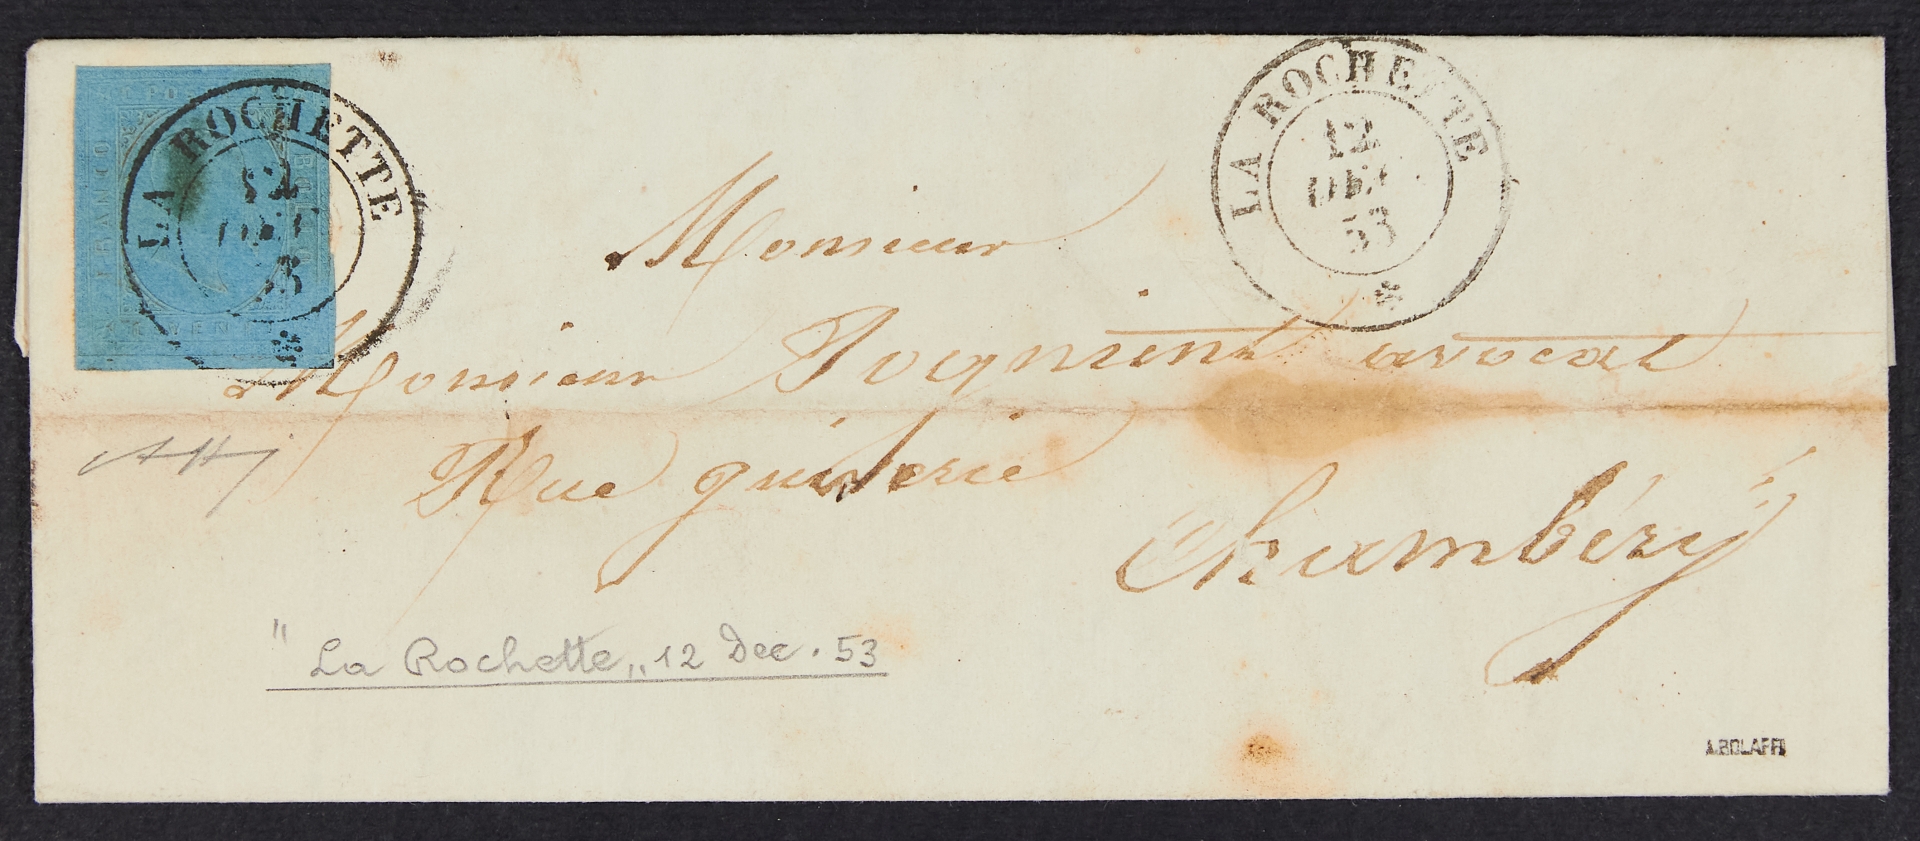 LA ROCHETTE
12
DEC
53
FRANCO
LA ROCHETTE
12
DEC
53
Monsieur
Monsieur avocat
Rue
Chambéry
"La Rochette„ 12 Dec. 53
A.BOLAFFI